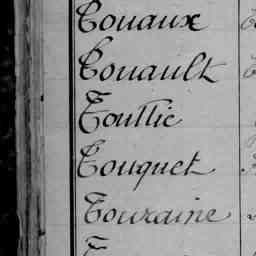 Touaux
Touault
Toullic
Touquet
Touraine